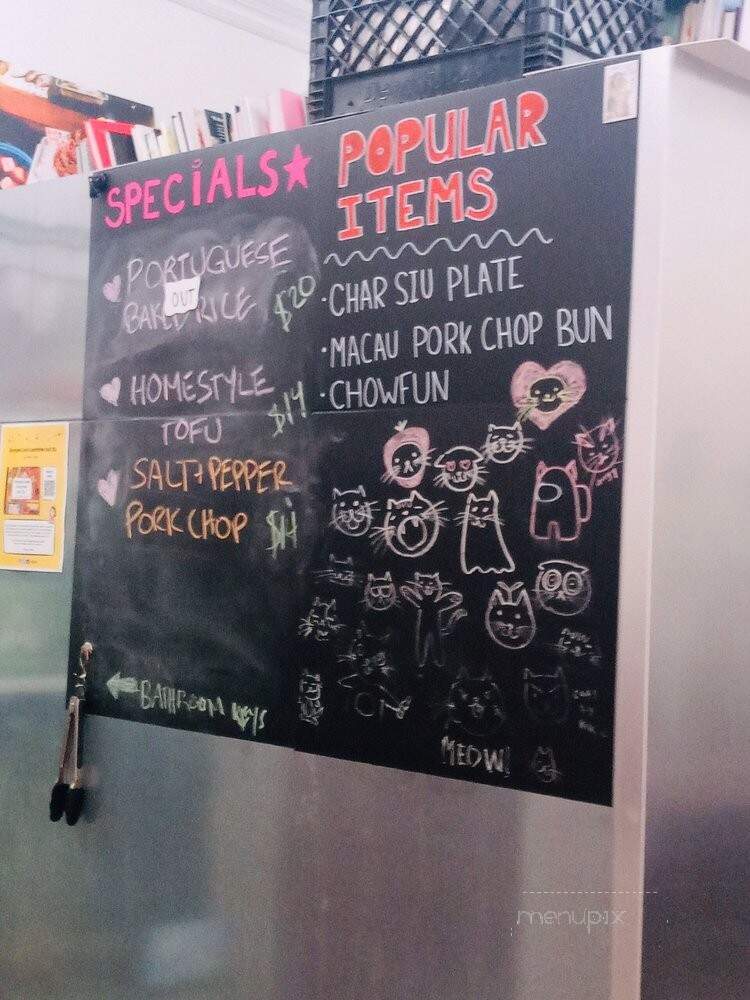 SPECIALS
PORTUGUESE
BAKED RICE $20
OUT
HOMESTYLE
TOFU $14
SALT & PEPPER
PORK CHOP $14
← BATHROOM KEYS
POPULAR
ITEMS
· CHAR SIU PLATE
· MACAU PORK CHOP BUN
· CHOWFUN
MEOW!
menupix